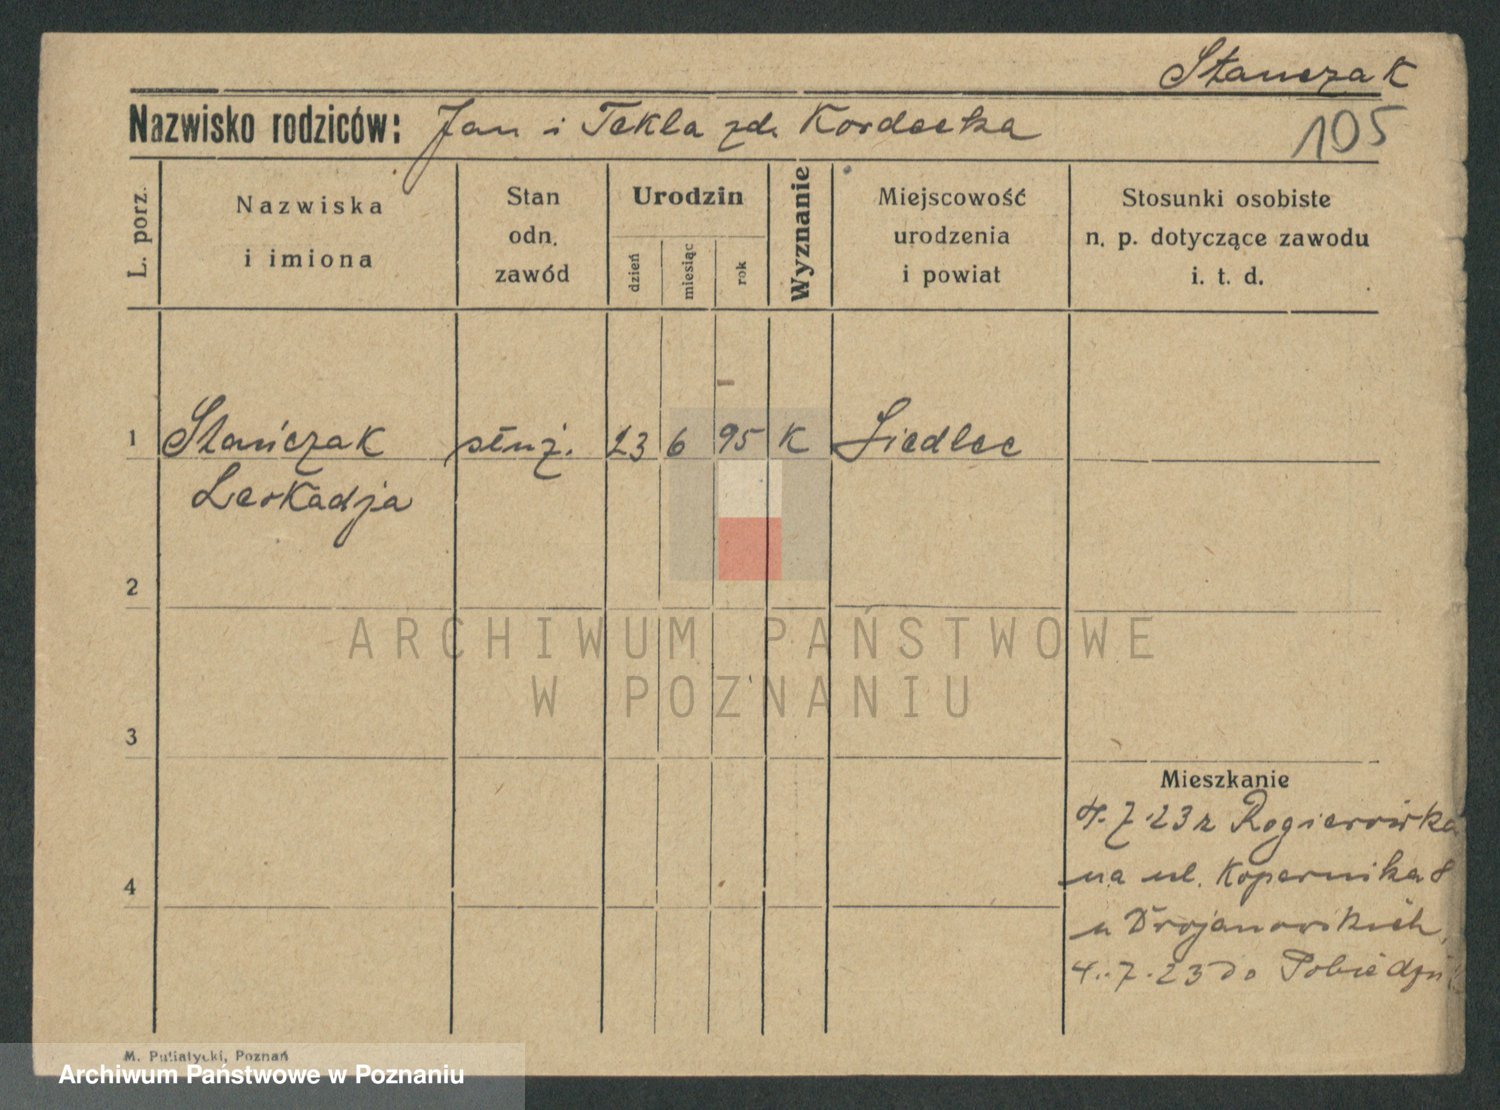 Stanczak
Nazwisko rodziców: Jan i Tekla zd. Kordecka
105
L. porz.
Nazwiska
i imiona
Stan
odn.
zawód
Urodzin
dzień
miesiąc
rok
Wyznanie
Miejscowość
urodzenia
i powiat
Stosunki osobiste
n. p. dotyczące zawodu
i. t. d.
1 Stańczak służ. 23 6 95 K Siedlec
Leokadja
2
3
4
Mieszkanie
4. 7. 23 z Rogierówka
na ul. Kopernika 8
u Drojanowskich
4. 7. 23 do
ARCHIWUM PAŃSTWOWE
W POZNANIU
M. Putiatycki, Poznań
Archiwum Państwowe w Poznaniu